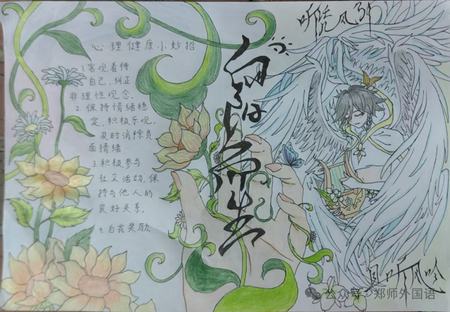 心理健康小妙招
1.客观看待
自己,纠正
非理性观念.
2.保持情绪稳
定,积极乐观,
及时消除负
面情绪
3.积极参与
社交活动,保
持与他人的
良好关系.
4.自我奖励
向阳而生
且听风吟
公众号·郑师外国语